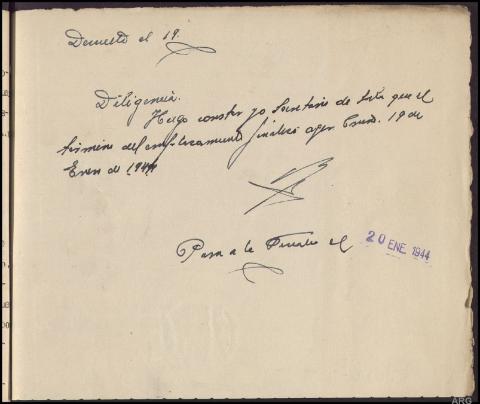 Devuelto el 19.
Diligencia.
Hago constar yo Secretario de Sala que el
término del emplazamiento finalizó ayer 19 de
Enero de 1944
Pasa a la el 20 ENE. 1944
ARG